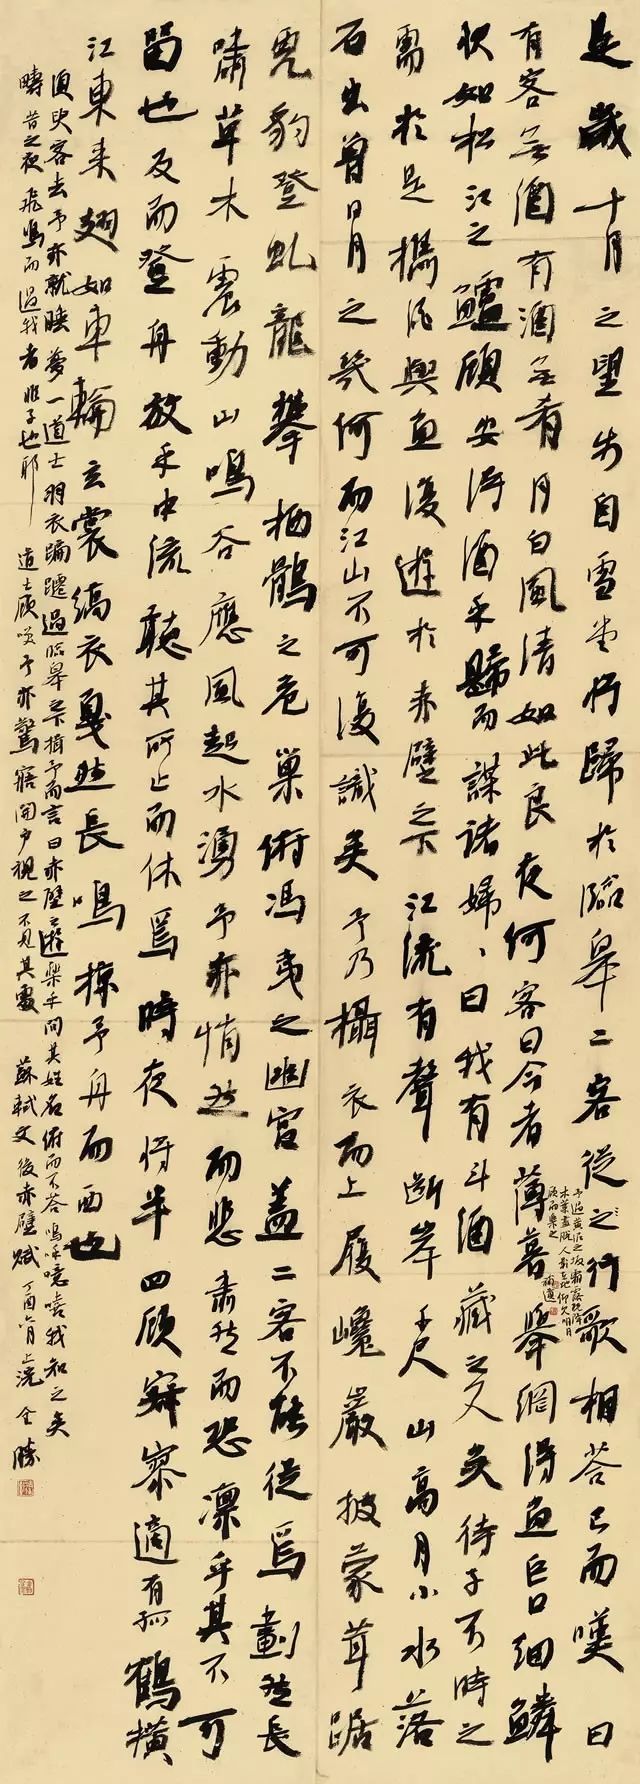 是歲十月之望步自雪堂將歸於臨皋二客從之行歌相答已而嘆曰
予過黃泥之坂霜露既降
木葉盡脫人影在地仰見明月
顧而樂之 補遺
有客無酒有酒無肴月白風清如此良夜何客曰今者薄暮舉網得魚巨口細鱗
狀如松江之鱸顧安得酒乎歸而謀諸婦、曰我有斗酒藏之久矣待子不時之
需於是攜酒與魚復遊於赤壁之下江流有聲斷岸千尺山高月小水落
石出曾日月之幾何而江山不可復識矣予乃攝衣而上履巉巖披蒙茸踞
虎豹登虬龍攀栖鶻之危巢俯馮夷之幽宮蓋二客不能從焉劃然長
嘯草木震動山鳴谷應風起水湧予亦悄然而悲肅然而恐凜乎其不可
留也反而登舟放乎中流聽其所止而休焉時夜將半四顧寂寥適有孤鶴橫
江東來翅如車輪玄裳縞衣戛然長鳴掠予舟而西也
須臾客去予亦就睡夢一道士羽衣蹁躚過臨皋之下揖予而言曰赤壁之遊樂乎問其姓名俯而不答嗚呼噫嘻我知之矣
疇昔之夜飛鳴而過我者非子也耶道士顧笑予亦驚寤開戶視之不見其處 蘇軾文後赤壁賦 丁酉六月上浣 全勝